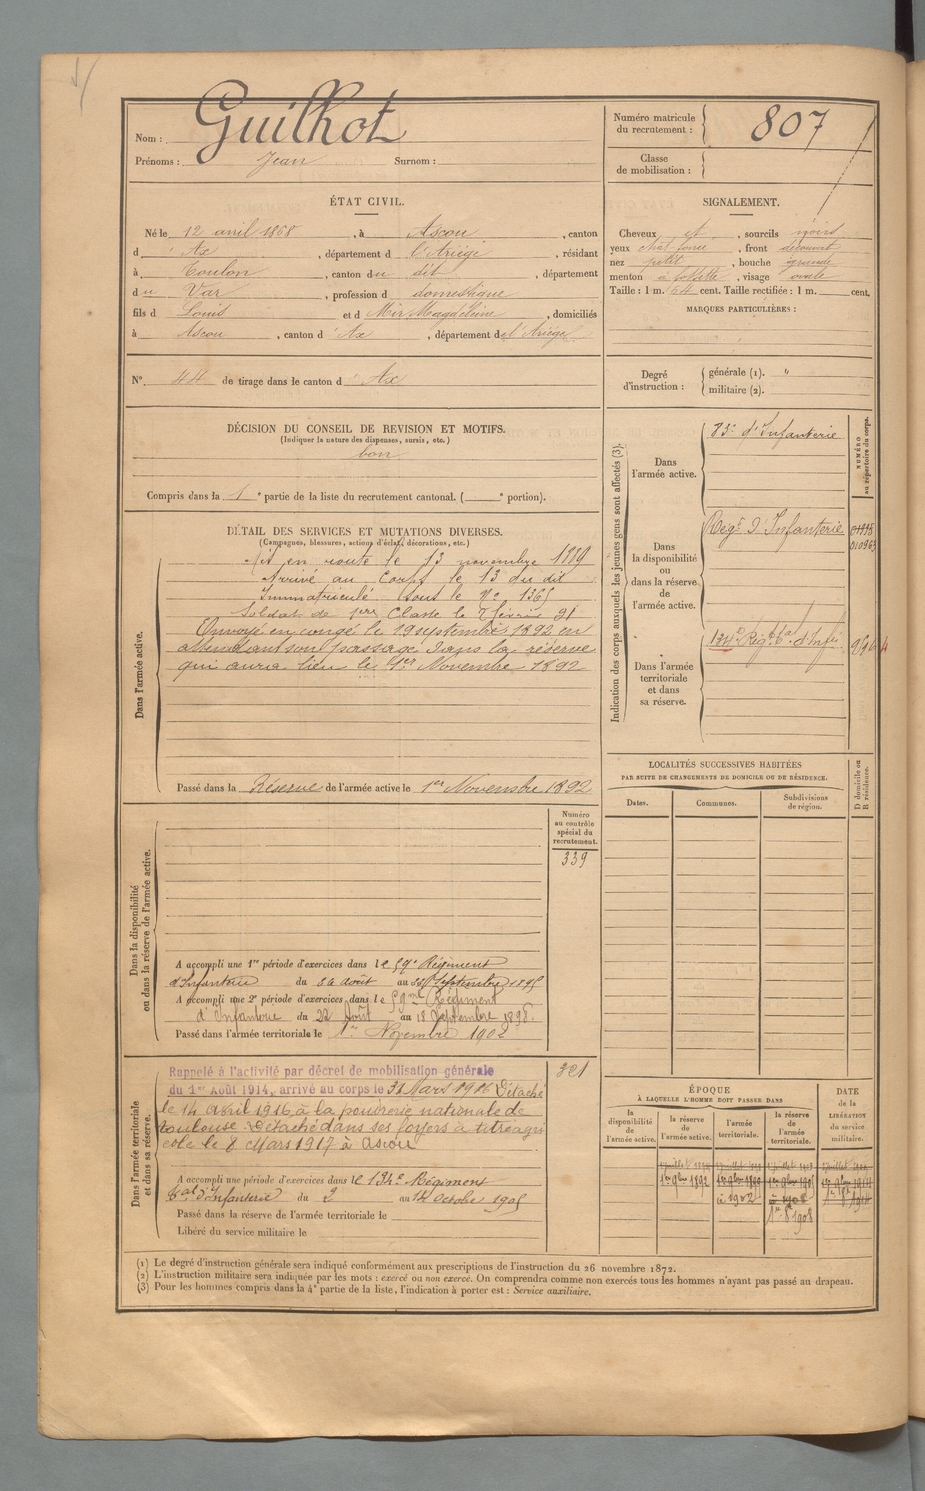 Nom : Guilhot
Prénoms : Jean Surnom :
Numéro matricule du recrutement : 807
Classe de mobilisation :
ÉTAT CIVIL.
Né le 12 avril 1868, à Ascou, canton
d' Ax, département d l'Ariège, résidant
à Toulon, canton du dit, département
du Var, profession d domestique
fils d Louis et d Mir Magdeleine, domiciliés
à Ascou, canton d' Ax, département de l'Ariège
SIGNALEMENT.
Cheveux et, sourcils noirs
yeux chat foncé, front découvert
nez petit, bouche grande
menton à fossette, visage ovale
Taille : 1 m. 64 cent. Taille rectifiée : 1 m. cent.
MARQUES PARTICULIÈRES :
N° 44 de tirage dans le canton d' Ax
Degré d'instruction : générale (1). "
militaire (2).
DÉCISION DU CONSEIL DE REVISION ET MOTIFS.
(Indiquer la nature des dispenses, sursis, etc.)
bon
Compris dans la 1e partie de la liste du recrutement cantonal. ( e portion).
DÉTAIL DES SERVICES ET MUTATIONS DIVERSES.
(Campagnes, blessures, actions d'éclat, décorations, etc.)
Dans l'armée active.
Mis en route le 13 novembre 1889
Arrivé au Corps le 13 du dit
Immatriculé sous le N° 1365
Soldat de 1re Classe le 7 février 91
Envoyé en congé le 19 septembre 1892 en
attendant son passage dans la réserve
qui aura lieu le 1er Novembre 1892
Passé dans la Réserve de l'armée active le 1er Novembre 1892
Indication des corps auxquels les jeunes gens sont affectés (3).
NUMÉRO au répertoire du corps.
Dans l'armée active.
83e d'Infanterie
Dans la disponibilité ou dans la réserve de l'armée active.
Régt d'Infanterie
Dans l'armée territoriale et dans sa réserve.
134e Régt tal d'Infie
LOCALITÉS SUCCESSIVES HABITÉES
PAR SUITE DE CHANGEMENTS DE DOMICILE OU DE RÉSIDENCE.
Dates. Communes. Subdivisions de région.
D domicile ou R résidence.
Dans la disponibilité ou dans la réserve de l'armée active.
Numéro au contrôle spécial du recrutement.
339
A accompli une 1re période d'exercices dans le 59e Régiment
d'Infanterie du 26 août au Septembre 1895
A accompli une 2e période d'exercices dans le 59me Régiment
d'Infanterie du 22 Août au 18 Septembre 1898.
Passé dans l'armée territoriale le 1er Novembre 1902
Dans l'armée territoriale et dans sa réserve.
321
Rappelé à l'activité par décret de mobilisation générale
du 1er Août 1914, arrivé au corps le 31 Mars 1916 Détaché
le 14 avril 1916 à la poudrerie nationale de
toulouse Détaché dans ses foyers à titre agri
cole le 8 Mars 1917 à Ascou
A accompli une période d'exercices dans le 134e Régiment
tal d'Infanterie du 2 au 14 Octobre 1905
Passé dans la réserve de l'armée territoriale le
Libéré du service militaire le
ÉPOQUE
À LAQUELLE L'HOMME DOIT PASSER DANS
la disponibilité de l'armée active. la réserve de l'armée active. l'armée territoriale. la réserve de l'armée territoriale.
DATE de la LIBÉRATION du service militaire.
1er 9bre 1892
1902
1908
(1) Le degré d'instruction générale sera indiqué conformément aux prescriptions de l'instruction du 26 novembre 1872.
(2) L'instruction militaire sera indiquée par les mots : exercé ou non exercé. On comprendra comme non exercés tous les hommes n'ayant pas passé au drapeau.
(3) Pour les hommes compris dans la 4e partie de la liste, l'indication à porter est : Service auxiliaire.